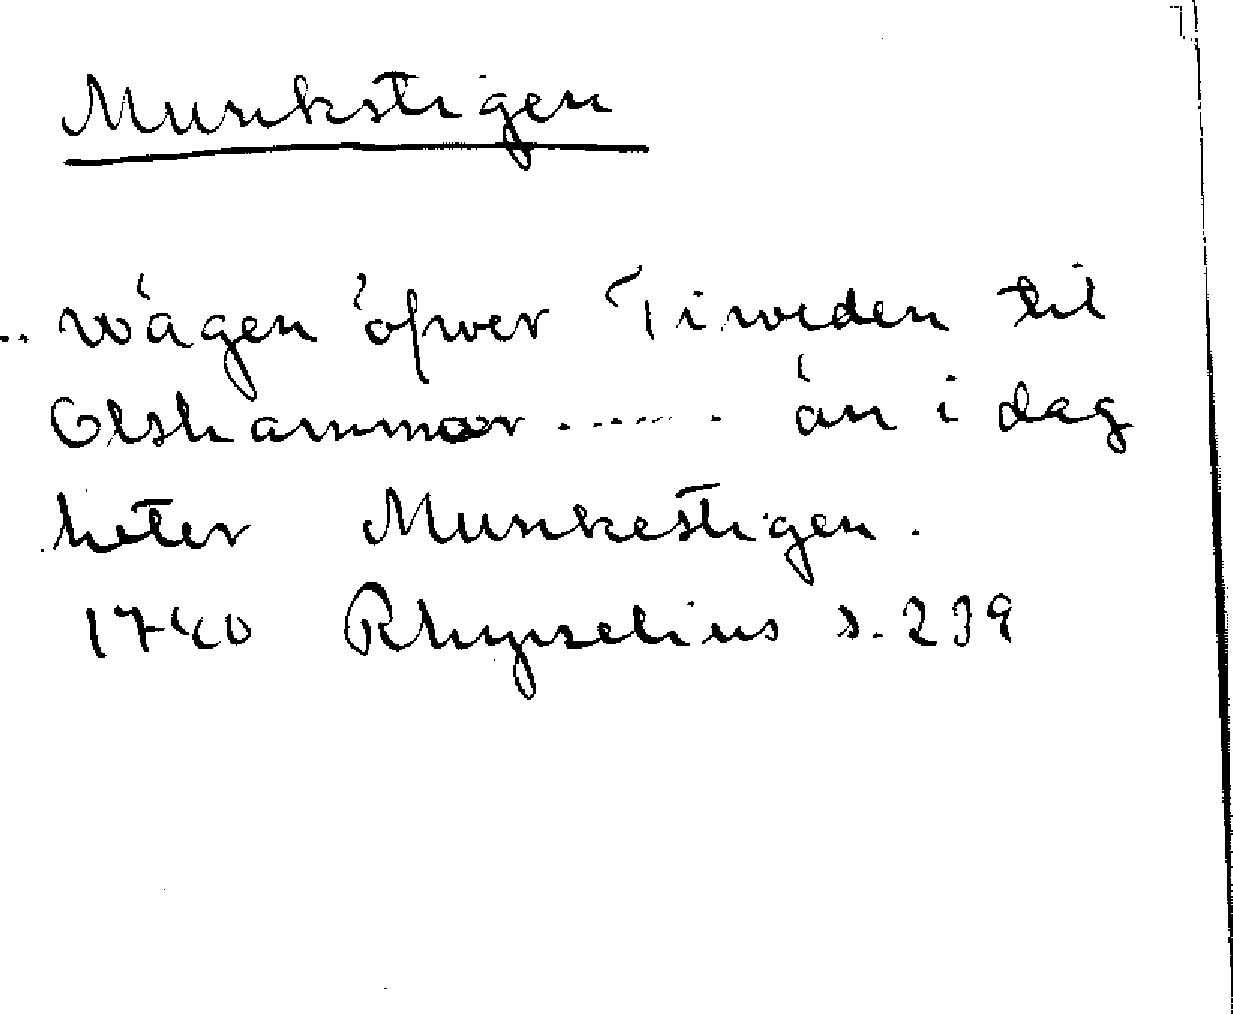 Munkstigen
.. wägen öfwer Tiweden til
Olshammar ....... än i dag
heter Munkestigen.
1740 Rhyzelius s. 239